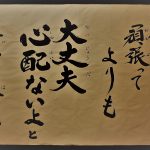 頑張って
よりも
大丈夫
心配ないよと